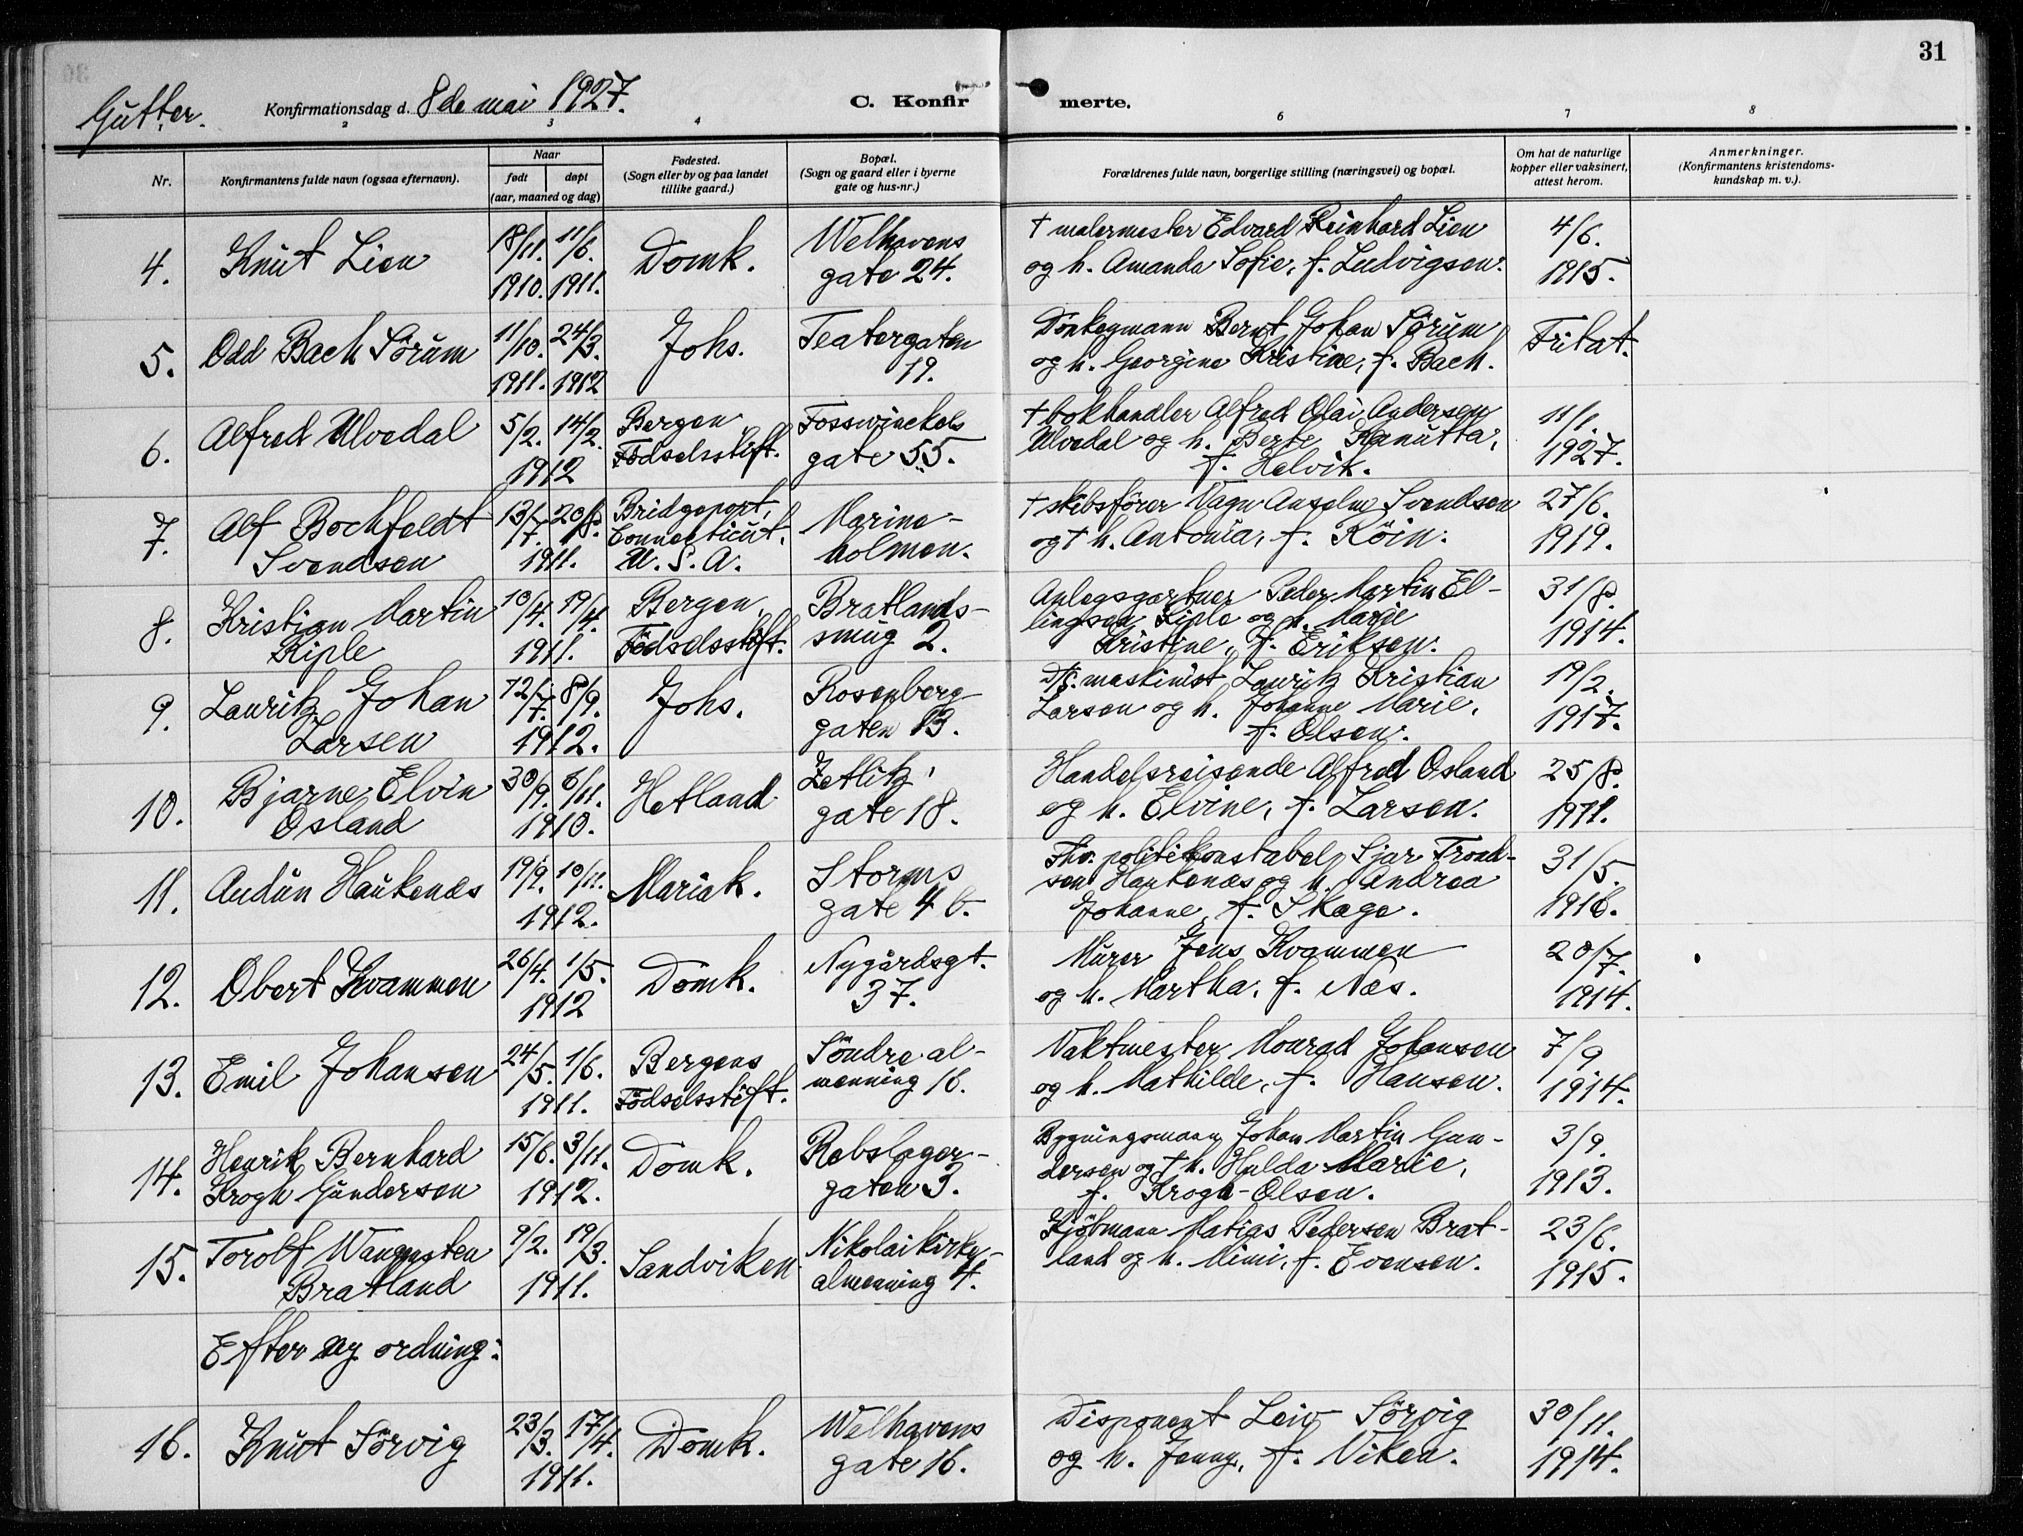 31
Gutter.
Konfirmationsdag d. 8de mai 1927.
C. Konfirmerte.
2 3 4 6 7 8
Nr.
Konfirmantens fulde navn (ogsaa efternavn).
Naar
født døpt
(aar, maaned og dag)
Fødested.
(Sogn eller by og paa landet
tillike gaard.)
Bopæl.
(Sogn og gaard eller i byerne
gate og hus-nr.)
Forældrenes fulde navn, borgerlige stilling (næringsvei) og bopæl.
Om hat de naturlige
kopper eller vaksinert,
attest herom.
Anmerkninger.
(Konfirmantens kristendoms-
kundskap m. v.).
4. Knut Lien
18/11. 11/6.
1910. 1911.
Domk.
Welhavens
gate 24.
† malermester Edvard Reinhard Lien
og h. Amanda Sofie, f. Ludvigsen.
4/6.
1915.
5. Odd Bach Sörum
11/10. 24/3.
1911. 1912
Johs.
Teatergaten
19.
Donkeymann Bernt Johan Sörum
og h. Georgine Kristine, f. Bach.
Fritat.
6. Alfred Ulvedal
5/2. 14/2.
1912
Bergen
Födselsstift.
Fosswinckels
gate 55.
† bokhandler Alfred Olai Andersen
Ulvedal og h. Berte Kanutta,
f. Helvik.
11/1.
1927.
7. Alf Bochfeldt
Svendsen
13/7. 20/8.
1911.
Bridgeport,
Connecticut.
U. S. A.
Marine-
holmen.
† skibsförer Vagn Anselm Svendsen
og † h. Antonia, f. Röin.
27/6.
1919.
8. Kristian Martin
Kiple
10/4. 19/4.
1911.
Bergen,
Födselsstift.
Bratlands-
smug 2.
Anlegsgartner Peder Martin El-
lingsen Kiple og h. Marie
Kristine, f. Eriksen.
31/8.
1914.
9. Lauritz Johan
Larsen
12/7. 8/9.
1912.
Johs.
Rosenberg-
gaten 13.
D/s. maskinist Lauritz Kristian
Larsen og h. Johanne Marie,
f. Olsen.
19/2.
1917.
10. Bjarne Elvin
Osland
30/9. 6/11.
1910.
Hetland
Zetlitz'
gate 18.
Handelsreisende Alfred Osland
og h. Elvine, f. Larsen.
25/8.
1911.
11. Audun Haukenæs
19/9. 10/11.
1912.
Mariak.
Storms
gate 4 b.
Fhv. politikonstabel Sjar Trond-
sen Haukenæs og h. Andrea
Johanne, f. Skage.
31/5.
1916.
12. Obert Kvammen
26/4. 1/5.
1912
Domk.
Nygårdsgt.
37.
Murer Jens Kvammen
og h. Martha, f. Næs.
20/7.
1914.
13. Emil Johansen
24/5. 1/6.
1911.
Bergens
Födselsstift.
Söndre al-
menning 16.
Vaktmester Konrad Johansen
og h. Mathilde, f. Hansen.
7/9
1914.
14. Henrik Bernhard
Krogh Gundersen
15/6. 3/11.
1912.
Domk.
Rebslager-
gaten 3.
Bygningsmann Johan Martin Gun-
dersen og † h. Hulda Marie,
f. Krogh-Olsen.
3/9.
1913.
15. Torolf Wangesten
Bratland
9/2. 19/3.
1911.
Sandviken
Nikolaikirke-
almenning 4.
Kjöbmann Matias Pedersen Brat-
land og h. Mimi, f. Evensen.
23/6.
1915.
Efter ny ordning:
16. Knut Sörvig
23/3. 17/4.
1911.
Domk.
Welhavens
gate 16.
Disponent Leiv Sörvig
og h. Jenny, f. Viken.
30/11.
1914.